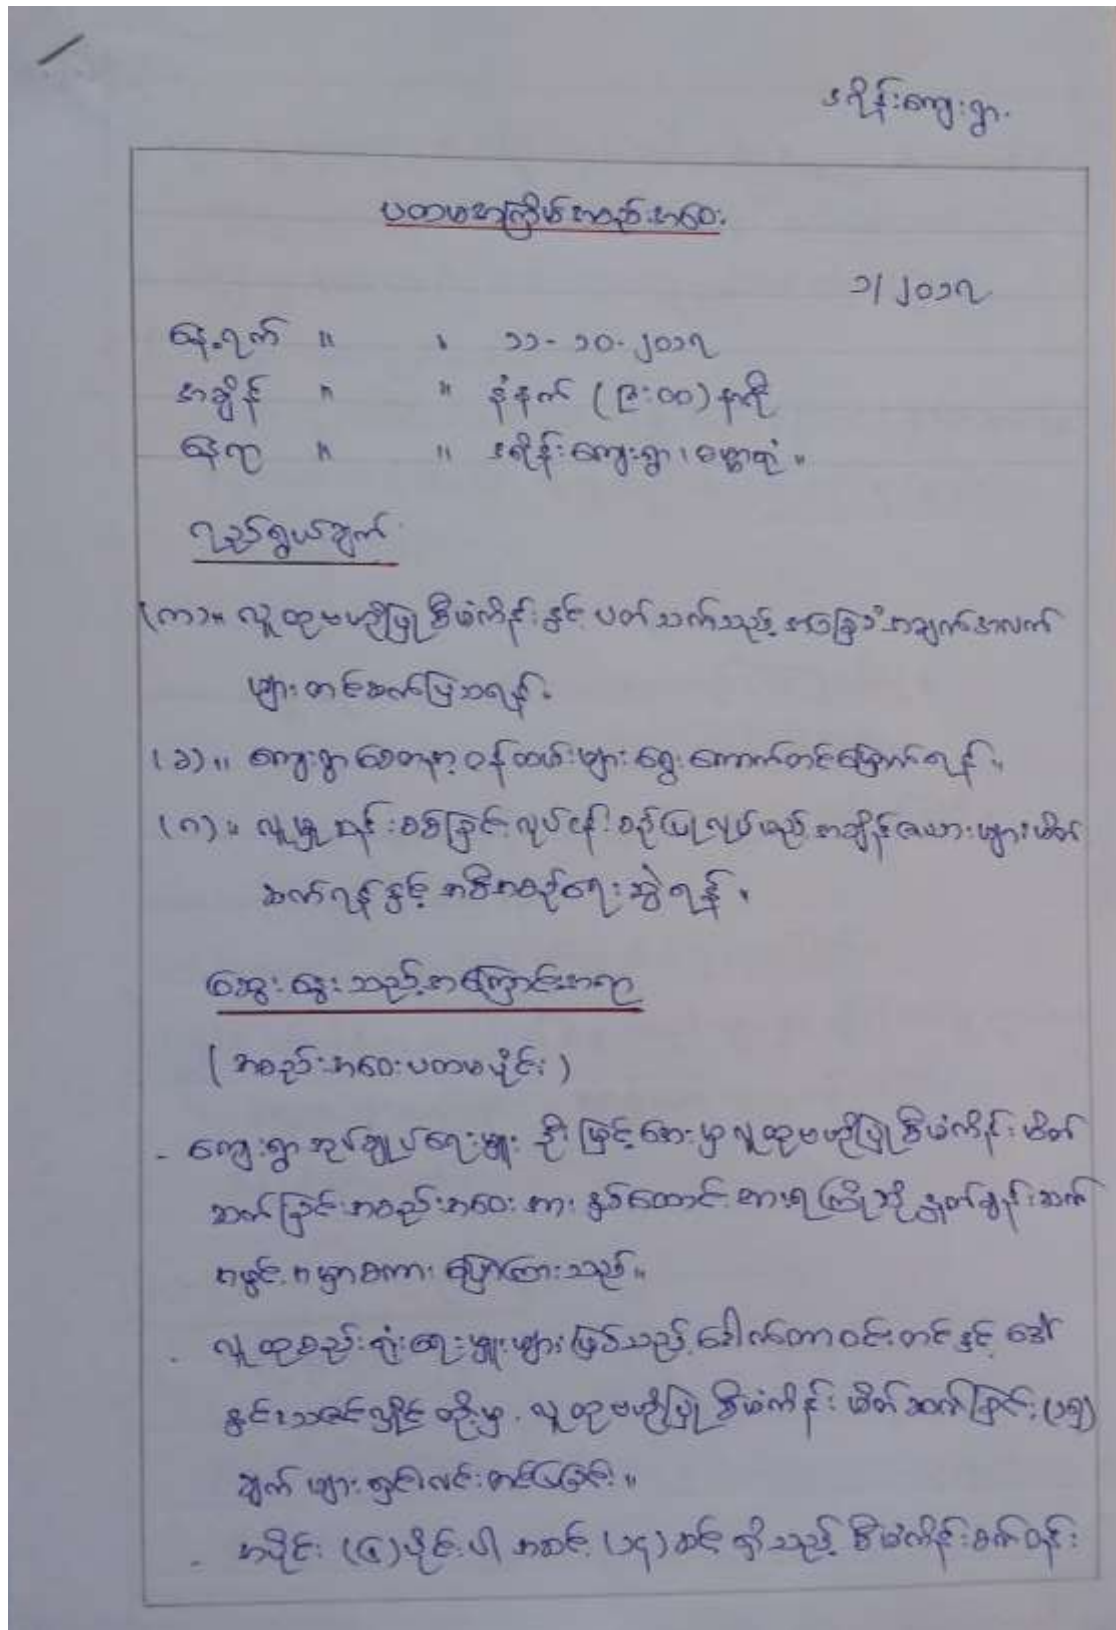 ဒရိန်းကျေးရွာ.
ပထမအကြိမ်အစည်းအဝေး
၁/၂၀၁၇
နေ့ရက် ။ ။ ၁၁-၁၀-၂၀၁၇
အချိန် ။ ။ နံနက် (၉:၀၀) နာရီ
နေရာ ။ ။ ဒရိန်းကျေးရွာ၊ ဓမ္မာရုံ ။
ရည်ရွယ်ချက်
(က)။ လူထုဗဟိုပြုစီမံကိန်းနှင့် ပတ်သက်သည့် အခြေခံအချက်အလက်
များ တင်ဆက်ပြသရန်။
(ခ)။ ကျေးရွာစေတနာ့ဝန်ထမ်းများ ရွေးကောက်တင်မြှောက်ရန် ။
(ဂ)။ လူမှုဆန်းစစ်ခြင်းလုပ်ငန်းစဉ်ပြုလုပ်မည့် အချိန်ဇယားများ မိတ်
ဆက်ရန်နှင့် အစီအစဉ်ရေးဆွဲရန် ။
ဆွေးနွေးသည့်အကြောင်းအရာ
(အစည်းအဝေးပထမပိုင်း)
- ကျေးရွာအုပ်ချုပ်ရေးမှူး ဦးမြင့်အေးမှ လူထုဗဟိုပြုစီမံကိန်း မိတ်
ဆက်ခြင်း အစည်းအဝေးအား နှစ်ထောင်းအားရ ကြိုဆိုနှုတ်ခွန်းဆက်
အဖွင့်အမှာစကား ပြောကြားသည်။
- လူထုစည်းရုံးရေးမှူးများဖြစ်သည့် ဒေါက်တာဝင်းတင်နှင့် ဒေါ်
နှင်းသဇင်လှိုင်တို့မှ လူထုဗဟိုပြုစီမံကိန်း မိတ်ဆက်ခြင်း (၁၅)
ချက်များ ရှင်းလင်းတင်ပြခြင်း။
- အပိုင်း (၄) ပိုင်းပါ အဆင့် (၁၄) ဆင့် ရှိသည့် စီမံကိန်းစက်ဝန်း